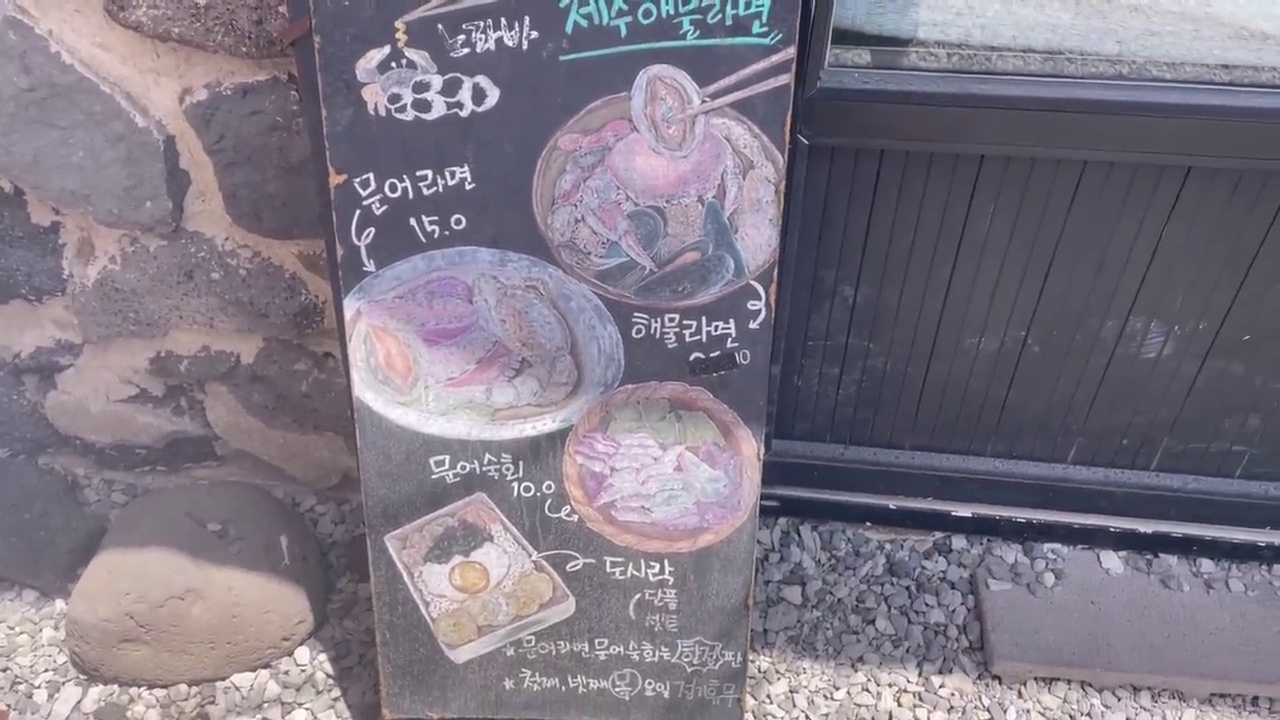 노라바
제주해물라면
문어라면
15.0
해물라면
10
문어숙회
10.0
도시락
단품
세트
* 문어라면, 문어숙회는 한정판
* 첫째, 넷째 (목)요일 정기휴무